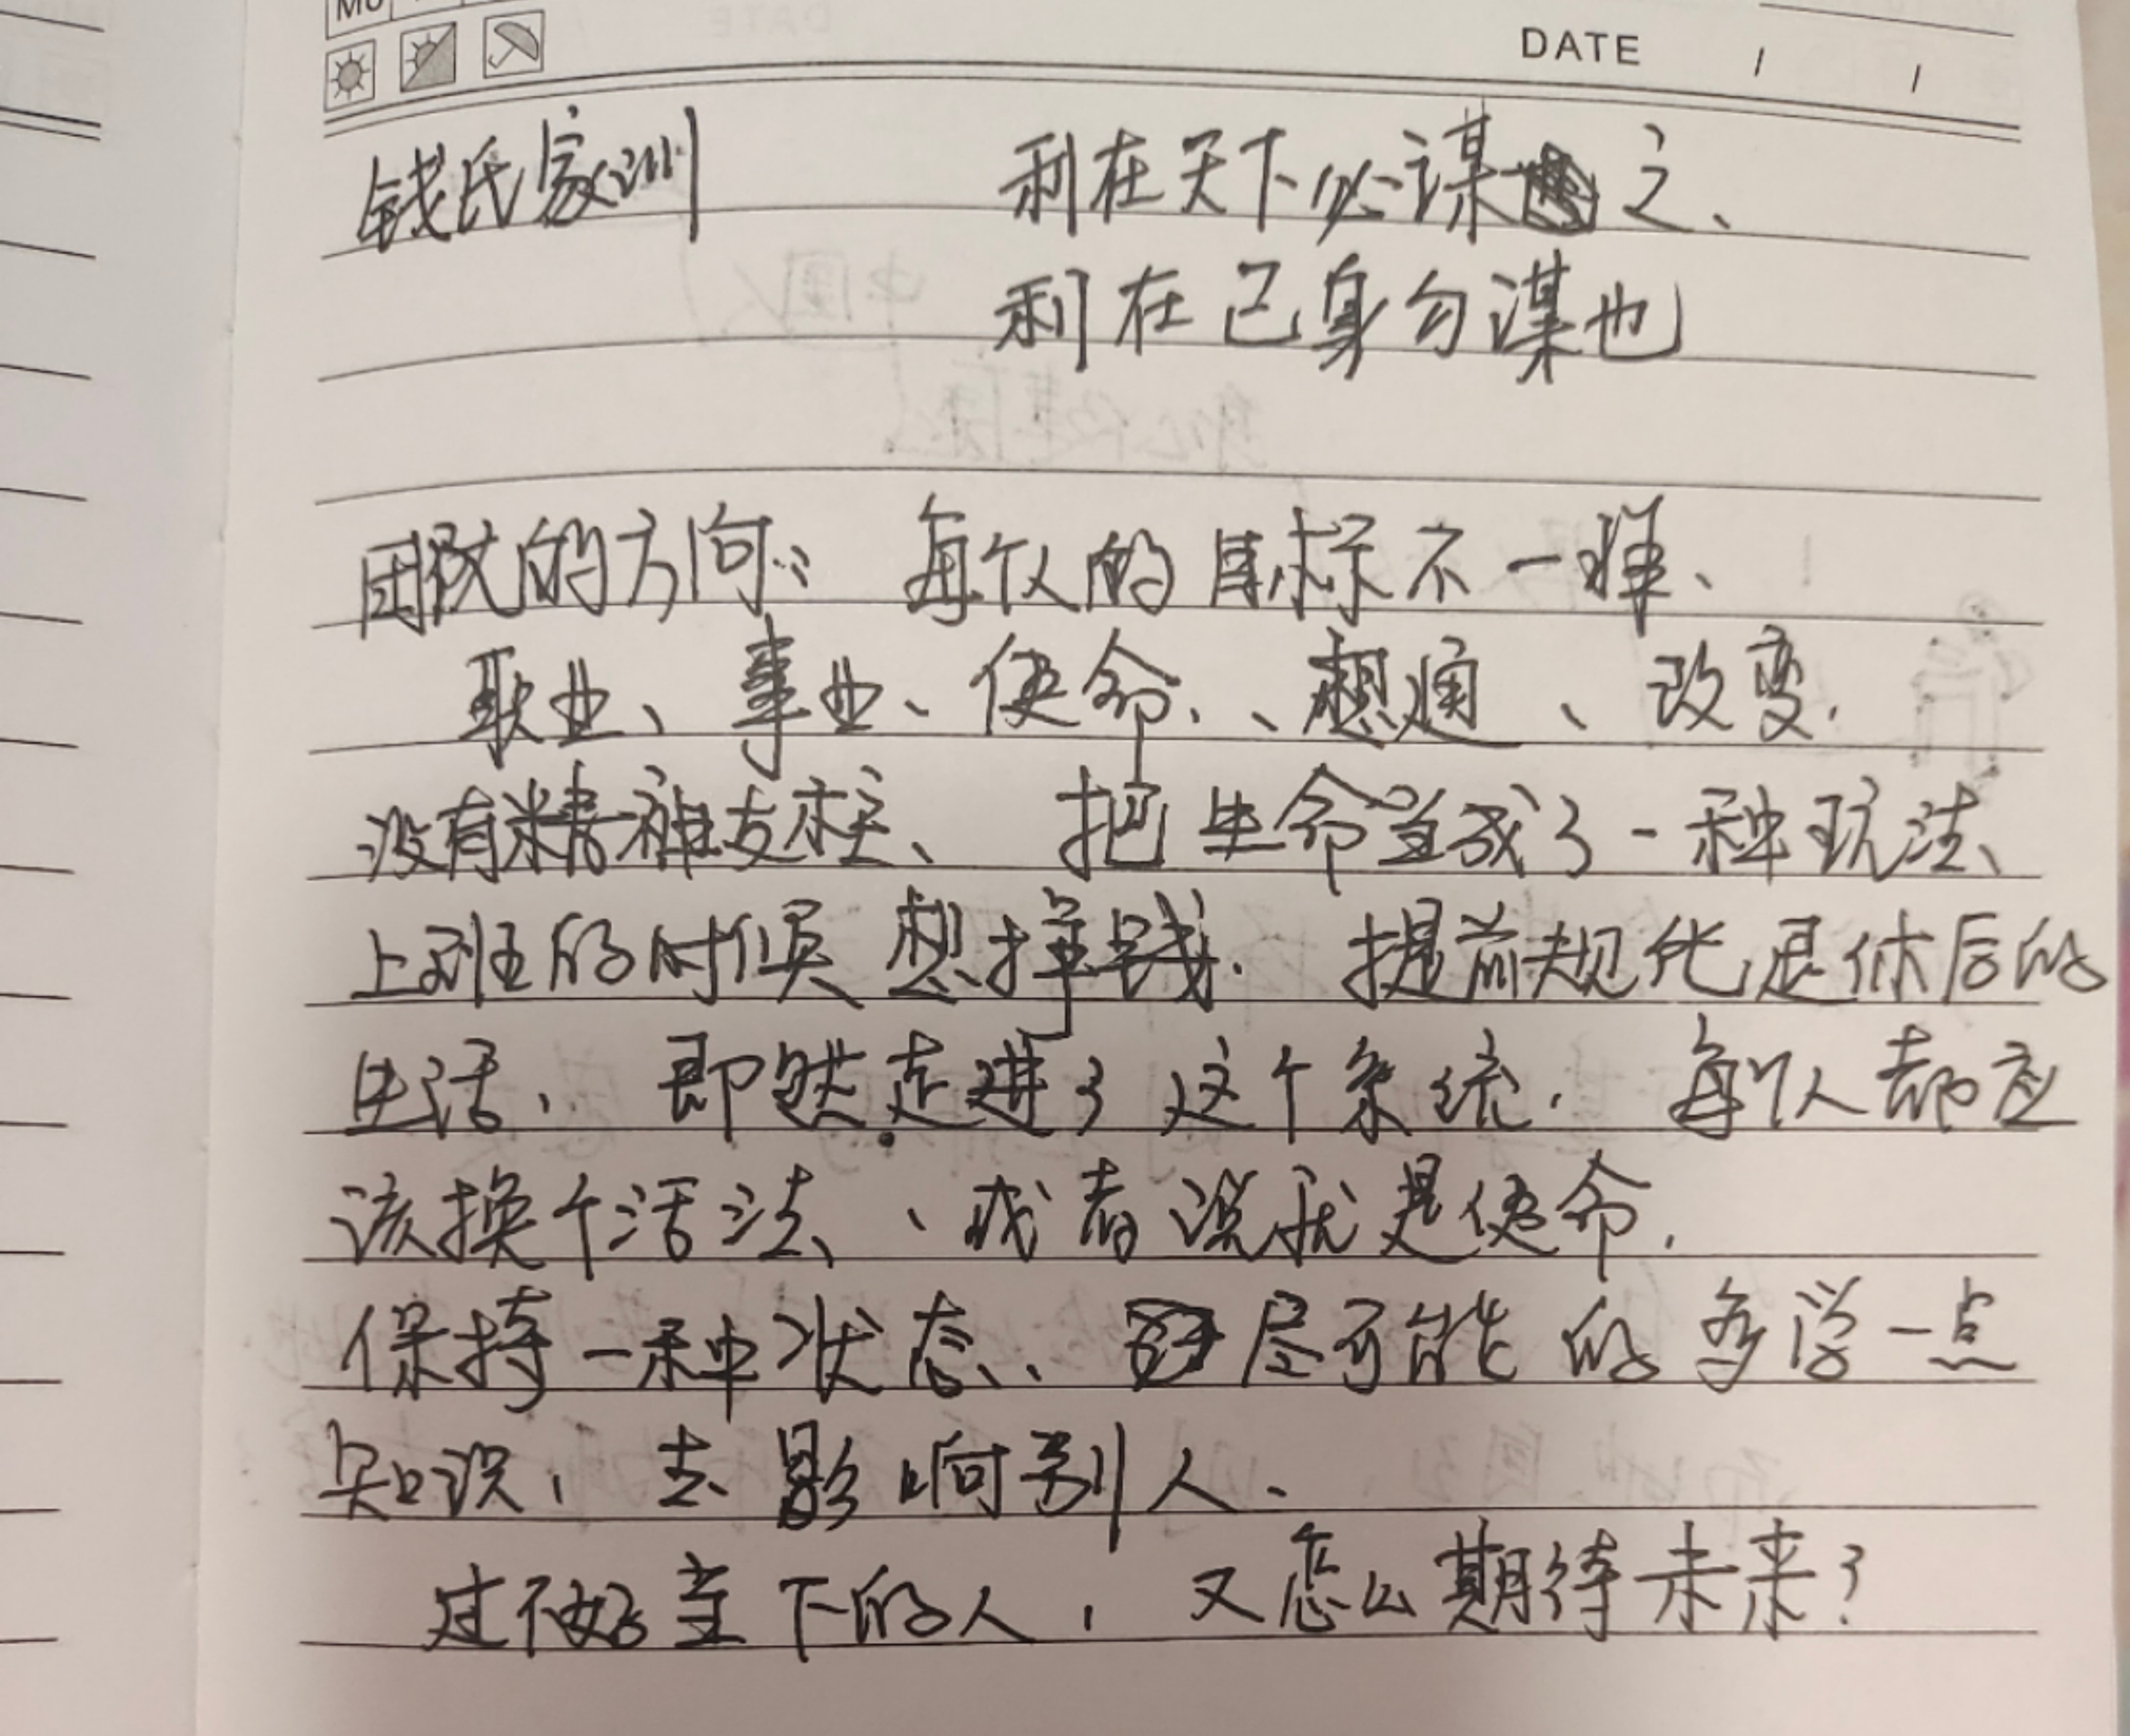 DATE / /
钱氏家训 利在天下必谋之、
利在己身勿谋也
团队的方向: 每个人的目标不一样、
职业、事业、使命、、想通、改变.
没有精神支柱、 把生命当成了一种玩法、
上班的时候想挣钱. 提前规化退休后的
生活、 即然走进了这个系统. 每个人都应
该换个活法、、或者说就是使命.
保持一种状态、、 尽可能的多学一点
知识, 去影响别人、
过不好当下的人, 又怎么期待未来?